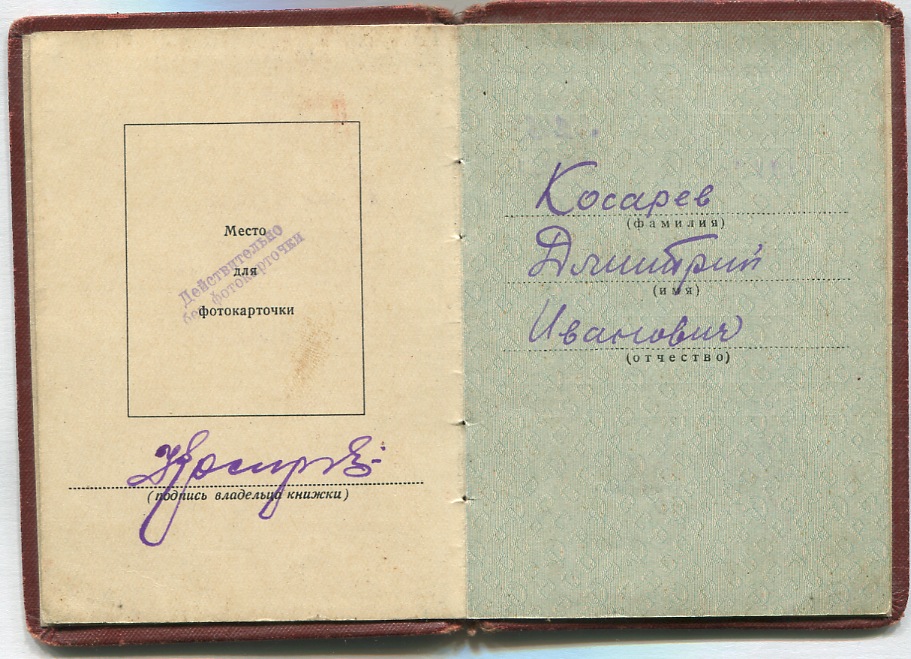 Место
для
фотокарточки
Действительно
без фотокарточки
Косарев
(подпись владельца книжки)
Косарев
(фамилия)
Дмитрий
(имя)
Иванович
(отчество)